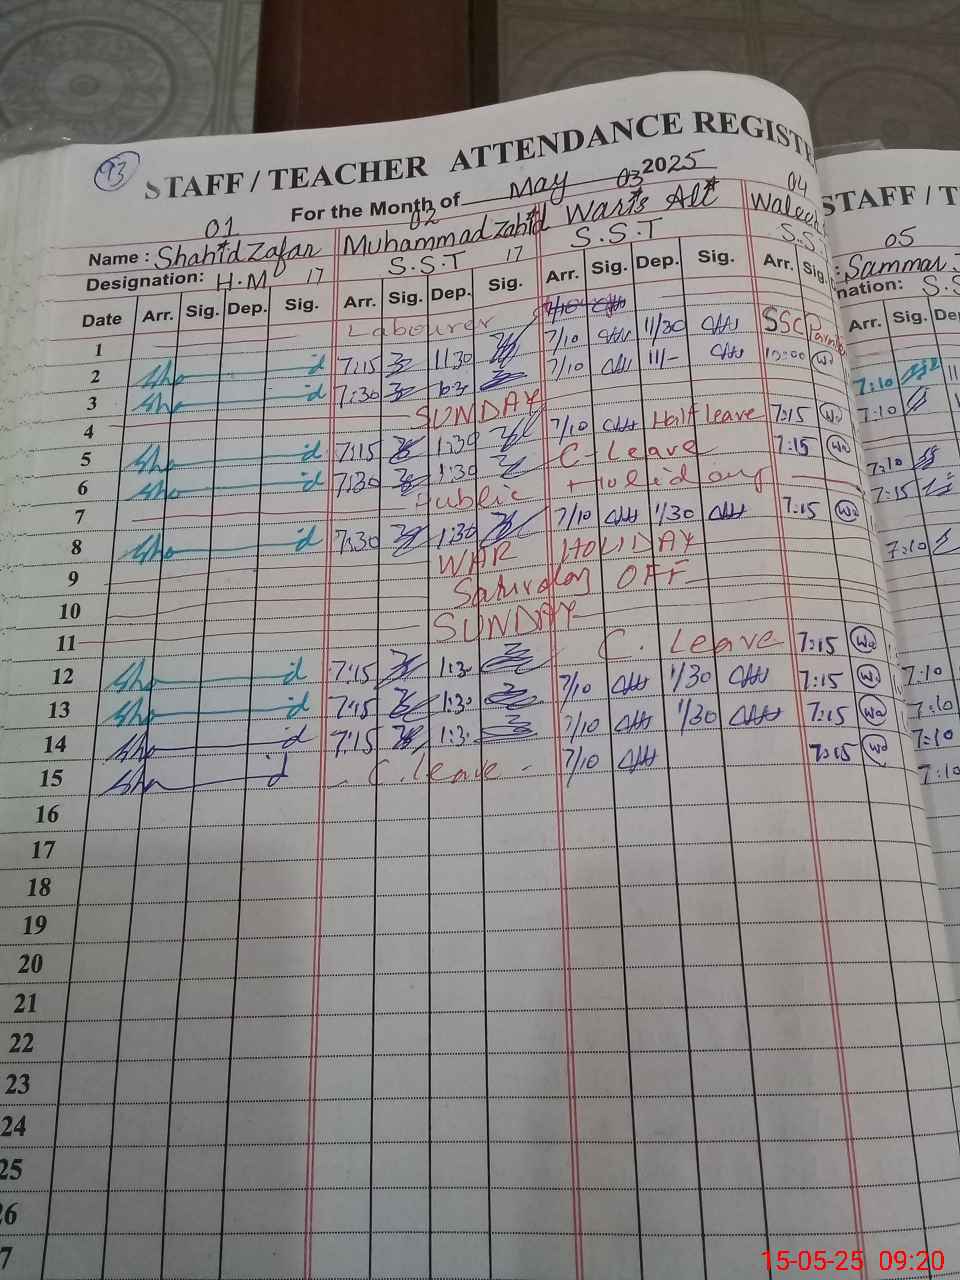 93
STAFF / TEACHER ATTENDANCE REGISTE
For the Month of May 2025
01 02 03 04
Name : Shahid Zafar Muhammad Zahid Waris Ali Waleed
Designation: H.M 17 S.S.T 17 S.S.T S.S.T
Date Arr. Sig. Dep. Sig. Arr. Sig. Dep. Sig. Arr. Sig. Dep. Sig. Arr. Sig.
1 Labourer 7/10
2 Sha d 7:15 11:30 7/10 11/30 SSC
3 Sha d 7:30 7/10 11/- 10:00 Wa
4 SUNDAY
5 Sha d 7:15 1:30 7/10 Half leave 7:15 Wa
6 Sha d 7:30 1:30 C-Leave 7:15 Wa
7 Public Holiday
8 Sha d 7:30 1:30 7/10 1/30 7:15 Wa
9 WAR HOLIDAY
10 Saturday OFF
11 SUNDAY
12 Sha d 7:15 1:3 C. Leave 7:15 Wa
13 Sha d 7:15 1:3 7/10 1/30 7:15 Wa
14 Sha d 7:15 1:3 7/10 1/30 7:15 Wa
15 Sha d - C. leave - 7/10 7:15 Wa
16
17
18
19
20
21
22
23
24
25
26
7
STAFF / T
05
: Sammar
nation: S.S
Arr. Sig. De
7:10
7:10
7:10
7:15
7:10
7:10
7:10
7:10
7:10
15-05-25 09:20